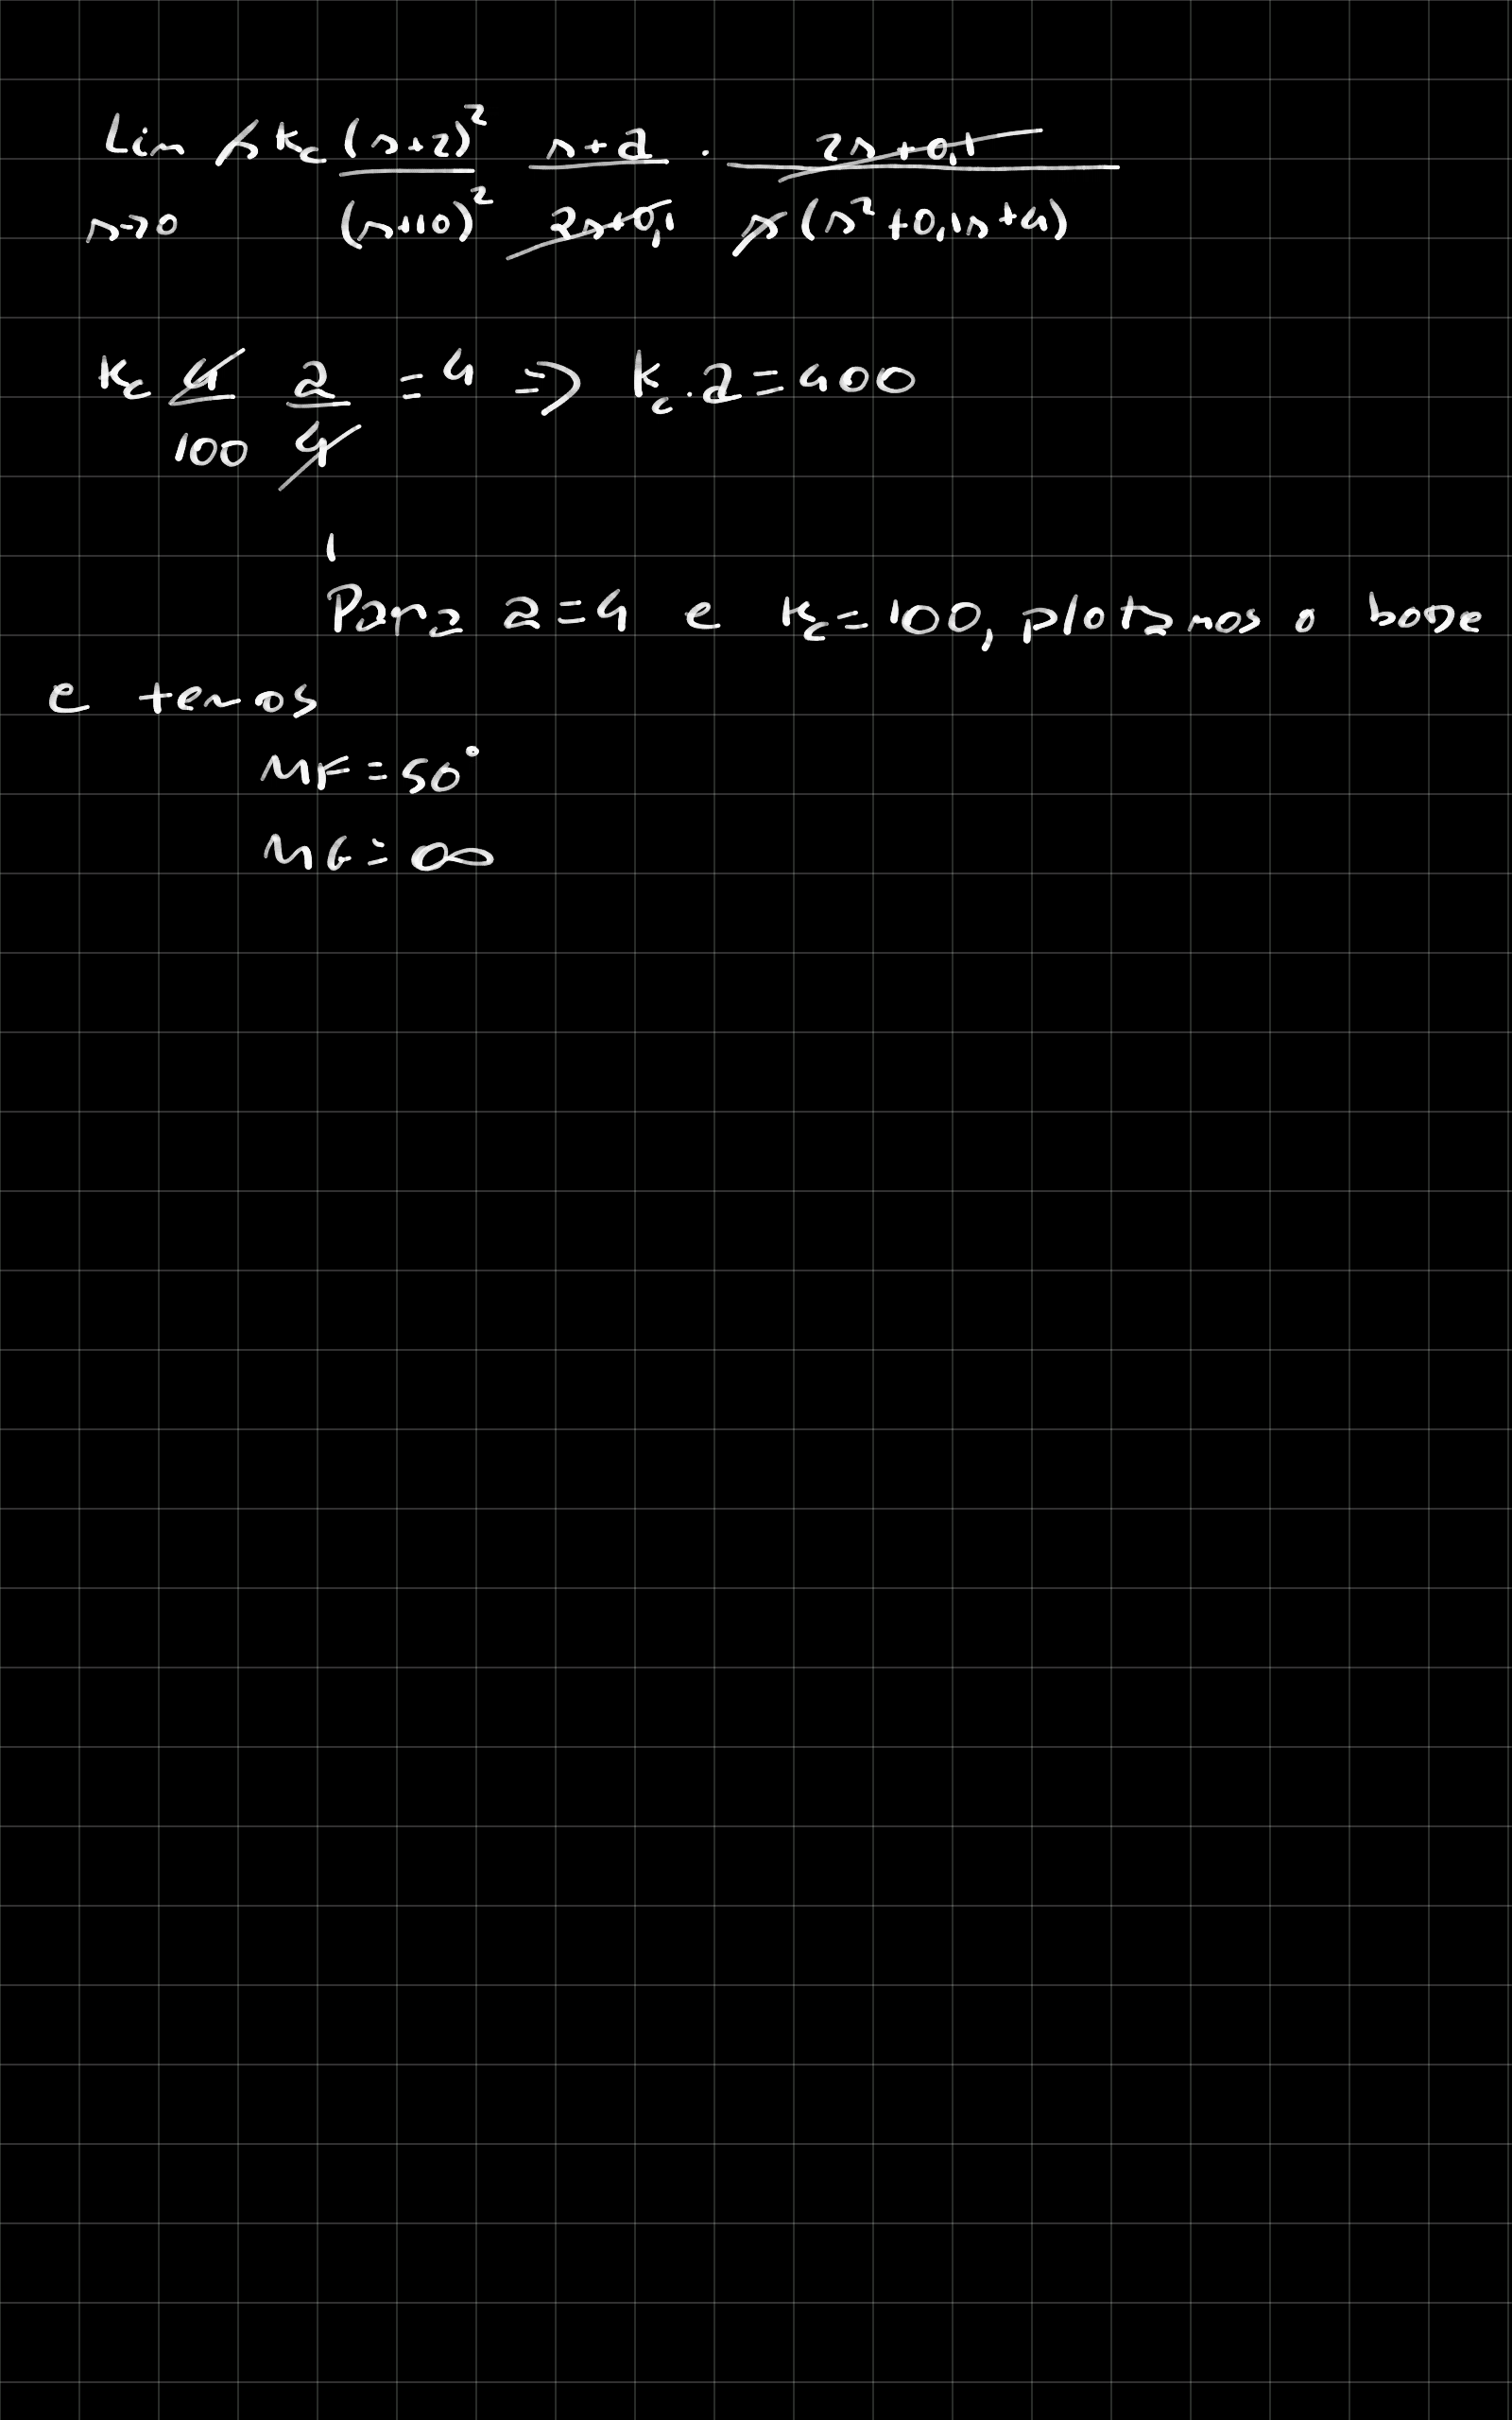 Lim s kc (s+2)² / (s+10)² (s+a) / (2s+0,1) · (2s+0,1) / (s(s²+0,1s+4))
s→0
kc 4/100 a/4 = 4 ⇒ kc.a = 400
Para a=4 e kc=100, plotamos o bode
e temos
MF=50°
MG=∞